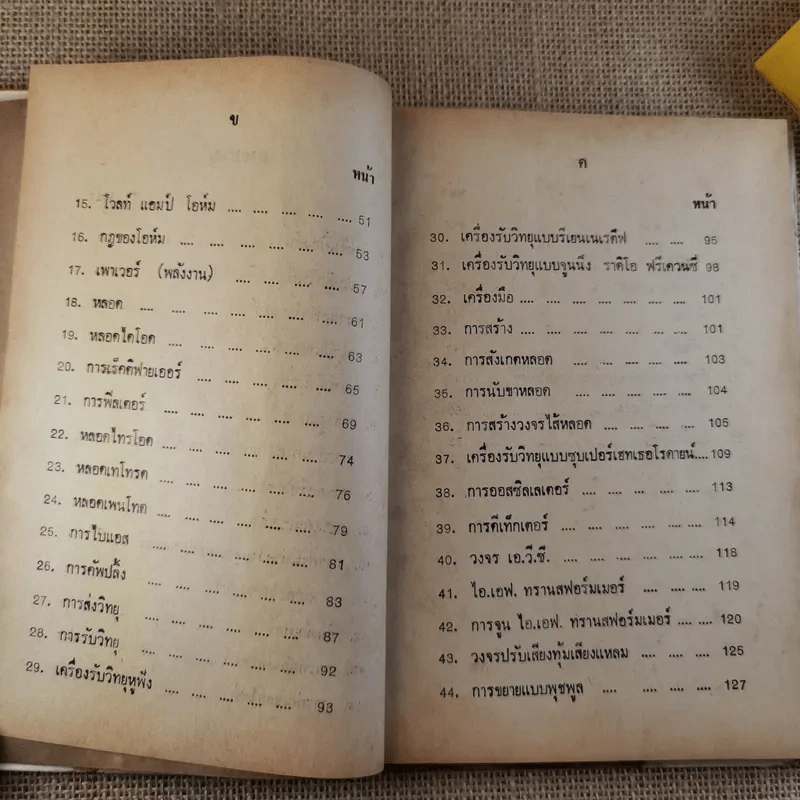 ข
หน้า
15. โวลท์ แอมป์ โอห์ม .... .... .... .... .... 51
16. กฎของโอห์ม .... .... .... .... .... .... 53
17. เพาเวอร์ (พลังงาน) .... .... .... .... 57
18. หลอด .... .... .... .... .... .... .... 61
19. หลอดไดโอด .... .... .... .... .... .... 63
20. การเร็คติฟายเออร์ .... .... .... .... .... 65
21. การฟิลเตอร์ .... .... .... .... .... .... 69
22. หลอดไทรโอด .... .... .... .... .... .... 74
23. หลอดเทโทรด .... .... .... .... .... .... 76
24. หลอดเพนโทด .... .... .... .... .... .... 79
25. การไบแอส .... .... .... .... .... .... 81
26. การคัพปลิ้ง .... .... .... .... .... .... 83
27. การส่งวิทยุ .... .... .... .... .... .... 87
28. การรับวิทยุ .... .... .... .... .... .... 92
29. เครื่องรับวิทยุหูฟัง .... .... .... .... .... 93
ค
หน้า
30. เครื่องรับวิทยุแบบรีเยนเนเรตีฟ .... .... 95
31. เครื่องรับวิทยุแบบจูนนิ่ง ราดิโอ ฟรีเควนซี่ 98
32. เครื่องมือ .... .... .... .... .... .... 101
33. การสร้าง .... .... .... .... .... .... .... 101
34. การสังเกตหลอด .... .... .... .... .... 103
35. การนับขาหลอด .... .... .... .... .... 104
36. การสร้างวงจรไส้หลอด .... .... .... .... 105
37. เครื่องรับวิทยุแบบซุบเปอร์เฮทเธอโรดายน์....109
38. การออสซิลเลเตอร์ .... .... .... .... .... 113
39. การดีเท็กเตอร์ .... .... .... .... .... .... 114
40. วงจร เอ.วี.ซี. .... .... .... .... .... .... 118
41. ไอ.เอฟ. ทรานสฟอร์มเมอร์ .... .... .... 119
42. การจูน ไอ.เอฟ. ทรานสฟอร์มเมอร์ .... .... 120
43. วงจรปรับเสียงทุ้มเสียงแหลม .... .... .... 125
44. การขยายแบบพุชพูล .... .... .... .... 127